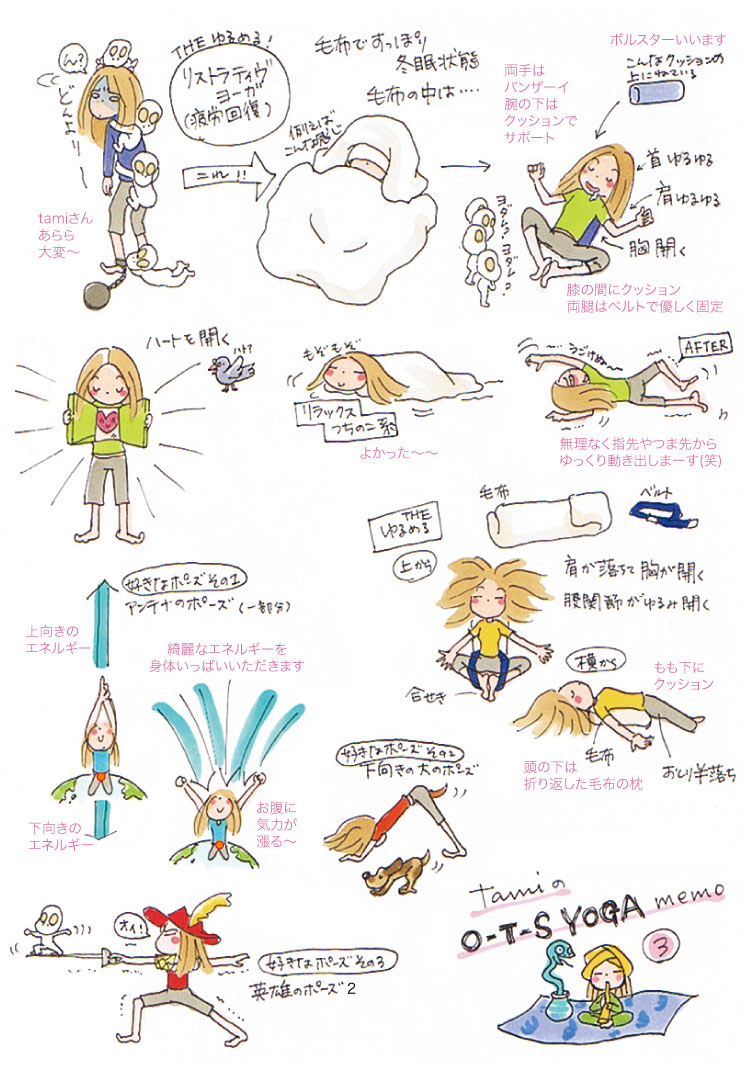 ん?
どんより〜
tamiさん
あらら
大変〜
THE ゆるめる!
リストラティヴ
ヨーガ
(疲労回復)
これ!!
毛布ですっぽり
冬眠状態
毛布の中は‥‥
例えば
こんな感じ
両手は
バンザーイ
腕の下は
クッションで
サポート
ボルスターいいます
こんなクッションの
上にねている
首ゆるゆる
肩ゆるゆる
胸開く
ヨダレ
ヨダレ
膝の間にクッション
両腿はベルトで優しく固定
ハートを開く
ハト?
もぞもぞ
リラックス
つちのこ系
よかった〜〜
うごけぬ〜
AFTER
無理なく指先やつま先から
ゆっくり動き出しまーす(笑)
THE
ゆるめる
毛布
ベルト
上から
肩が落ちて胸が開く
股関節がゆるみ開く
合せき
横から
もも下に
クッション
毛布
おしり半落ち
頭の下は
折り返した毛布の枕
好きなポーズその1
アンテナのポーズ(一部分)
上向きの
エネルギー
綺麗なエネルギーを
身体いっぱいいただきます
下向きの
エネルギー
お腹に
気力が
漲る〜
好きなポーズその2
下向きの犬のポーズ
オイ!
好きなポーズその3
英雄のポーズ 2
tamiの
O-T-S YOGA memo
3